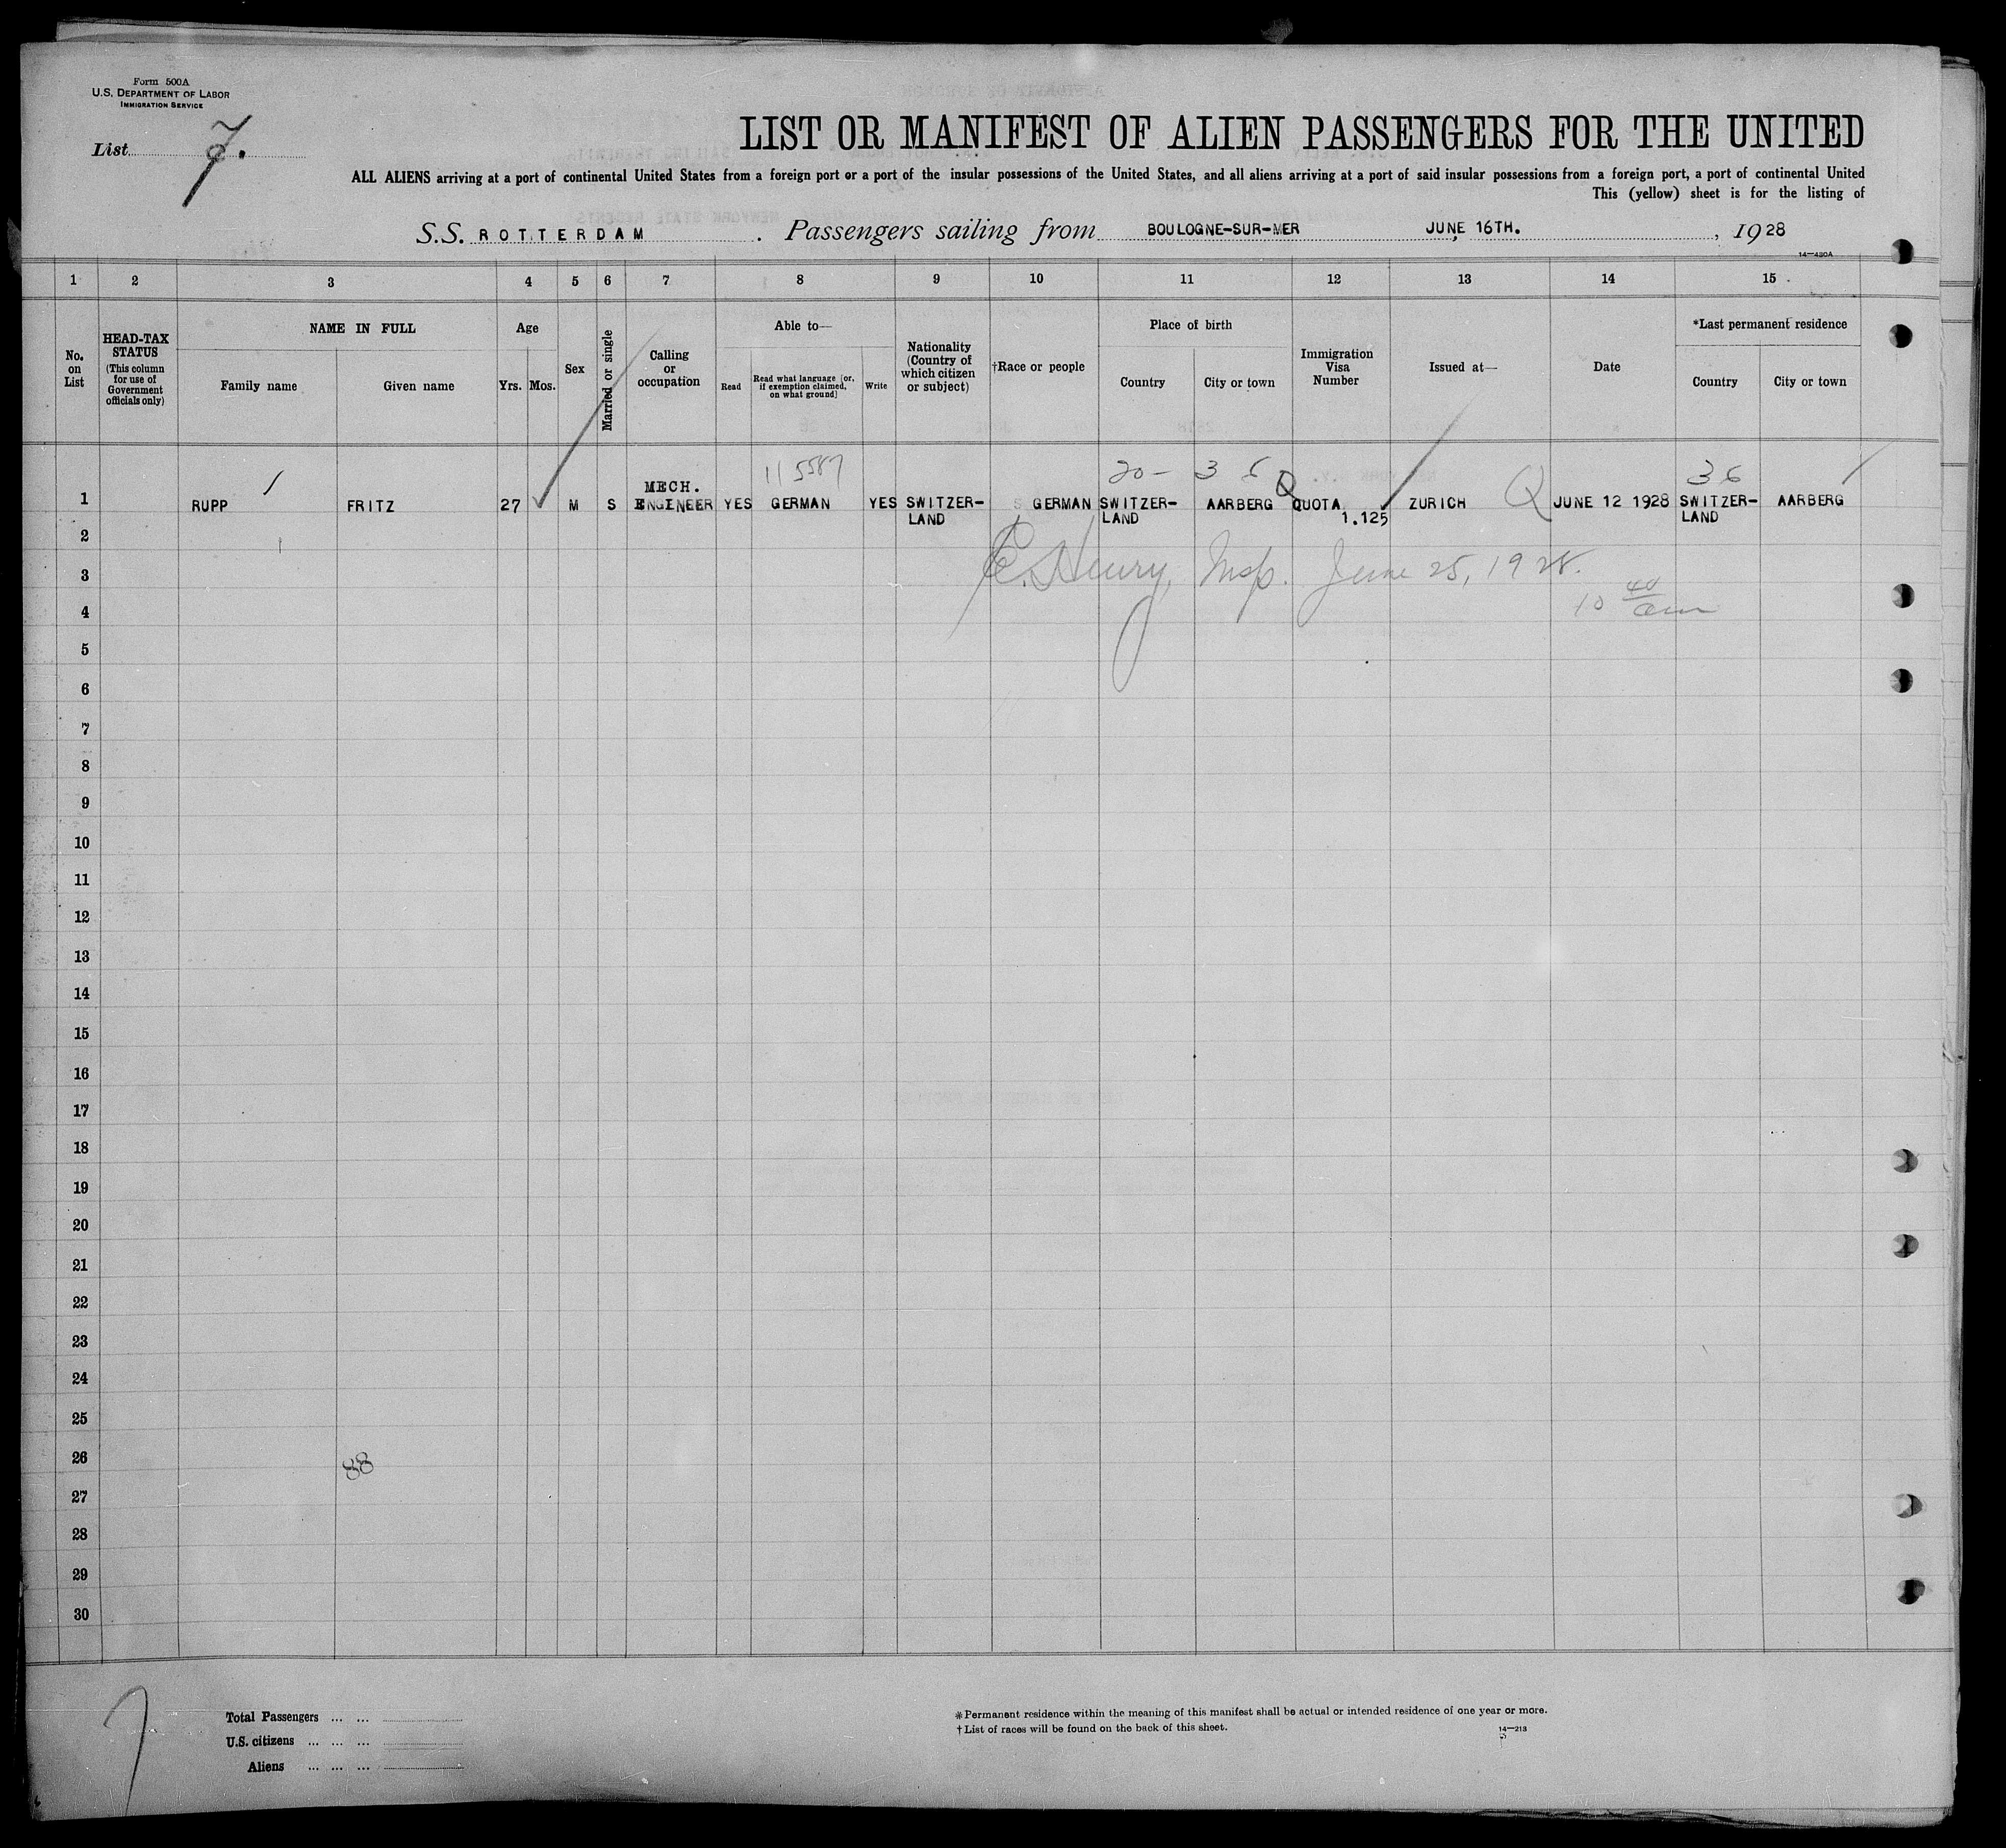 Form 500A
U.S. DEPARTMENT OF LABOR
IMMIGRATION SERVICE
List 7.
LIST OR MANIFEST OF ALIEN PASSENGERS FOR THE UNITED
ALL ALIENS arriving at a port of continental United States from a foreign port or a port of the insular possessions of the United States, and all aliens arriving at a port of said insular possessions from a foreign port, a port of continental United
This (yellow) sheet is for the listing of
S.S. ROTTERDAM. Passengers sailing from BOULOGNE-SUR-MER JUNE 16TH. , 1928
14—480A
1 2 3 4 5 6 7 8 9 10 11 12 13 14 15
No. on List
HEAD-TAX STATUS
(This column for use of Government officials only)
NAME IN FULL
Family name
Given name
Age
Yrs. Mos.
Sex
Married or single
Calling or occupation
Able to—
Read
Read what language [or, if exemption claimed, on what ground]
Write
Nationality (Country of which citizen or subject)
†Race or people
Place of birth
Country
City or town
Immigration Visa Number
Issued at—
Date
*Last permanent residence
Country
City or town
115587 20- 3 6 Q 36
MECH.
1 RUPP FRITZ 27 M S ENGINEER YES GERMAN YES SWITZER- GERMAN SWITZER- AARBERG QUOTA ZURICH Q JUNE 12 1928 SWITZER- AARBERG
LAND LAND 1.125 LAND
2
3 C. Henry, Insp. June 25, 1928.
4 10 40 am
5
6
7
8
9
10
11
12
13
14
15
16
17
18
19
20
21
22
23
24
25
26 88
27
28
29
30
7
Total Passengers ... ...
U.S. citizens ... ... ...
Aliens ... ... ...
*Permanent residence within the meaning of this manifest shall be actual or intended residence of one year or more.
†List of races will be found on the back of this sheet.
14—213